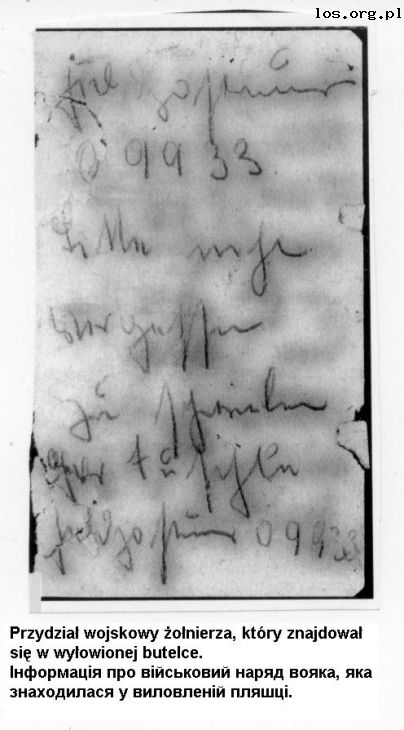 los.org.pl
09933
Bitte nicht
vergessen
zu schreiben
09933
Przydział wojskowy żołnierza, który znajdował
się w wyłowionej butelce.
Інформація про військовий наряд вояка, яка
знаходилася у виловленій пляшці.